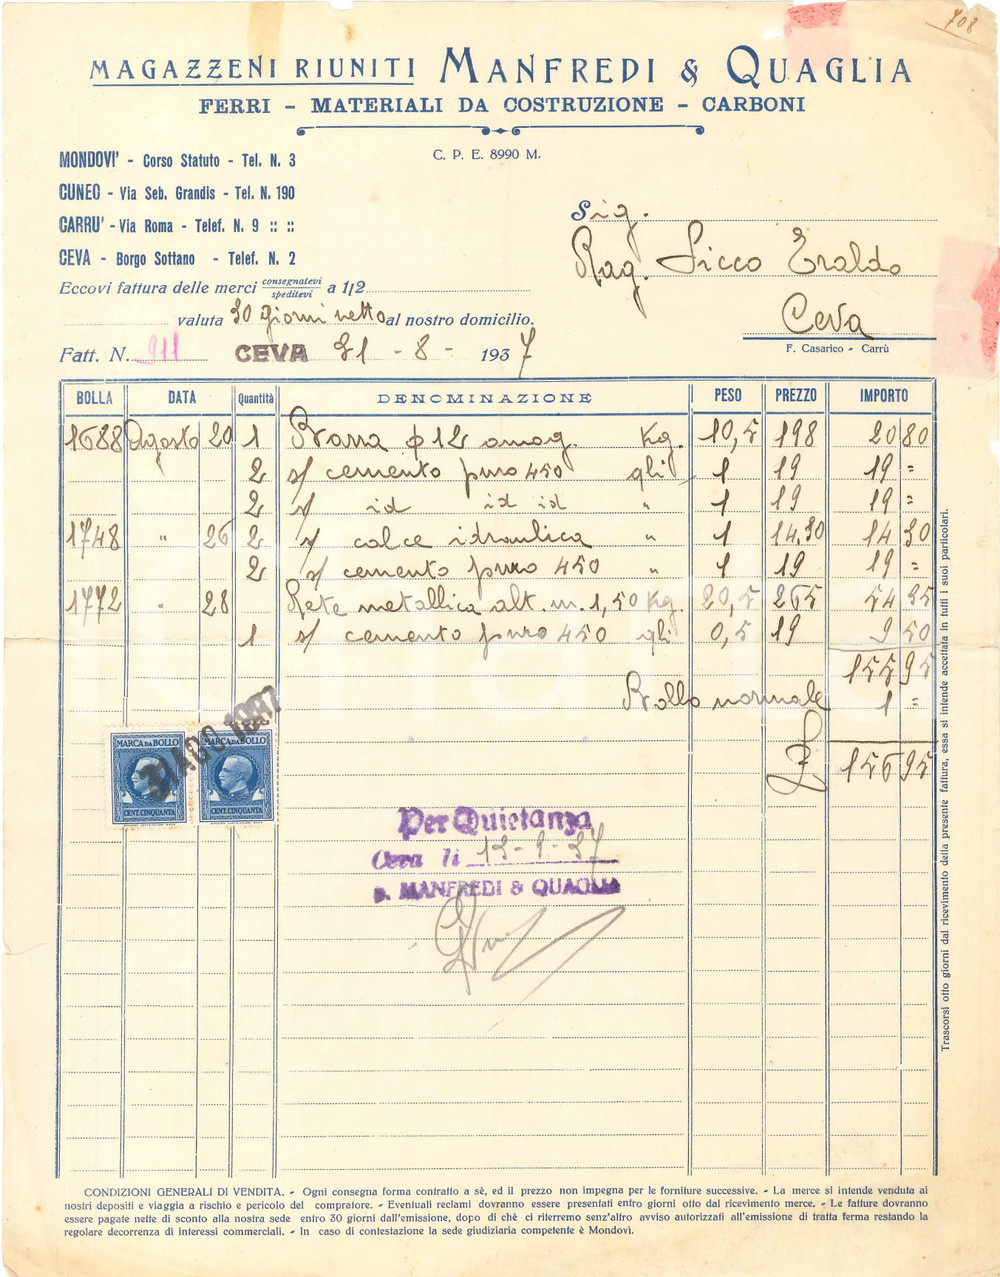 708
MAGAZZENI RIUNITI MANFREDI & QUAGLIA
FERRI - MATERIALI DA COSTRUZIONE - CARBONI
C. P. E. 8990 M.
MONDOVI' - Corso Statuto - Tel. N. 3
CUNEO - Via Seb. Grandis - Tel. N. 190
CARRU' - Via Roma - Telef. N. 9 :: ::
CEVA - Borgo Sottano - Telef. N. 2
Sig.
Rag. Sicco Eraldo
Ceva
F. Casarico - Carrù
Eccovi fattura delle merci consegnatevi speditevi a 1/2
valuta 30 giorni netto al nostro domicilio.
Fatt. N. 911 CEVA 31 - 8 - 1937
BOLLA DATA Quantità DENOMINAZIONE PESO PREZZO IMPORTO
1688 Agosto 20 1 Barra φ 12 omog. Kg. 10,5 198 20 80
2 s/ cemento puro 450 qli 1 19 19 =
2 s/ id id id " 1 19 19 =
1748 " 26 2 s/ calce idraulica " 1 14.30 14 30
2 s/ cemento puro 450 " 1 19 19 =
1772 " 28 Rete metallica alt. m. 1,50 Kg. 20,5 265 54 35
1 s/ cemento puro 450 qli 0,5 19 9 50
155 95
Bollo normale 1 =
£ 156 95
31 AGO 1937
MARCA DA BOLLO MARCA DA BOLLO
CENT. CINQUANTA CENT. CINQUANTA
Per Quietanza
Ceva li 13-9-37
p. MANFREDI & QUAGLIA
Trascorsi otto giorni dal ricevimento della presente fattura, essa si intende accettata in tutti i suoi particolari.
CONDIZIONI GENERALI DI VENDITA. - Ogni consegna forma contratto a sè, ed il prezzo non impegna per le forniture successive. - La merce si intende venduta ai
nostri depositi e viaggia a rischio e pericolo del compratore. - Eventuali reclami dovranno essere presentati entro giorni otto dal ricevimento merce. - Le fatture dovranno
essere pagate nette di sconto alla nostra sede entro 30 giorni dall'emissione, dopo di chè ci riterremo senz'altro avviso autorizzati all'emissione di tratta ferma restando la
regolare decorrenza di interessi commerciali. - In caso di contestazione la sede giudiziaria competente è Mondovì.